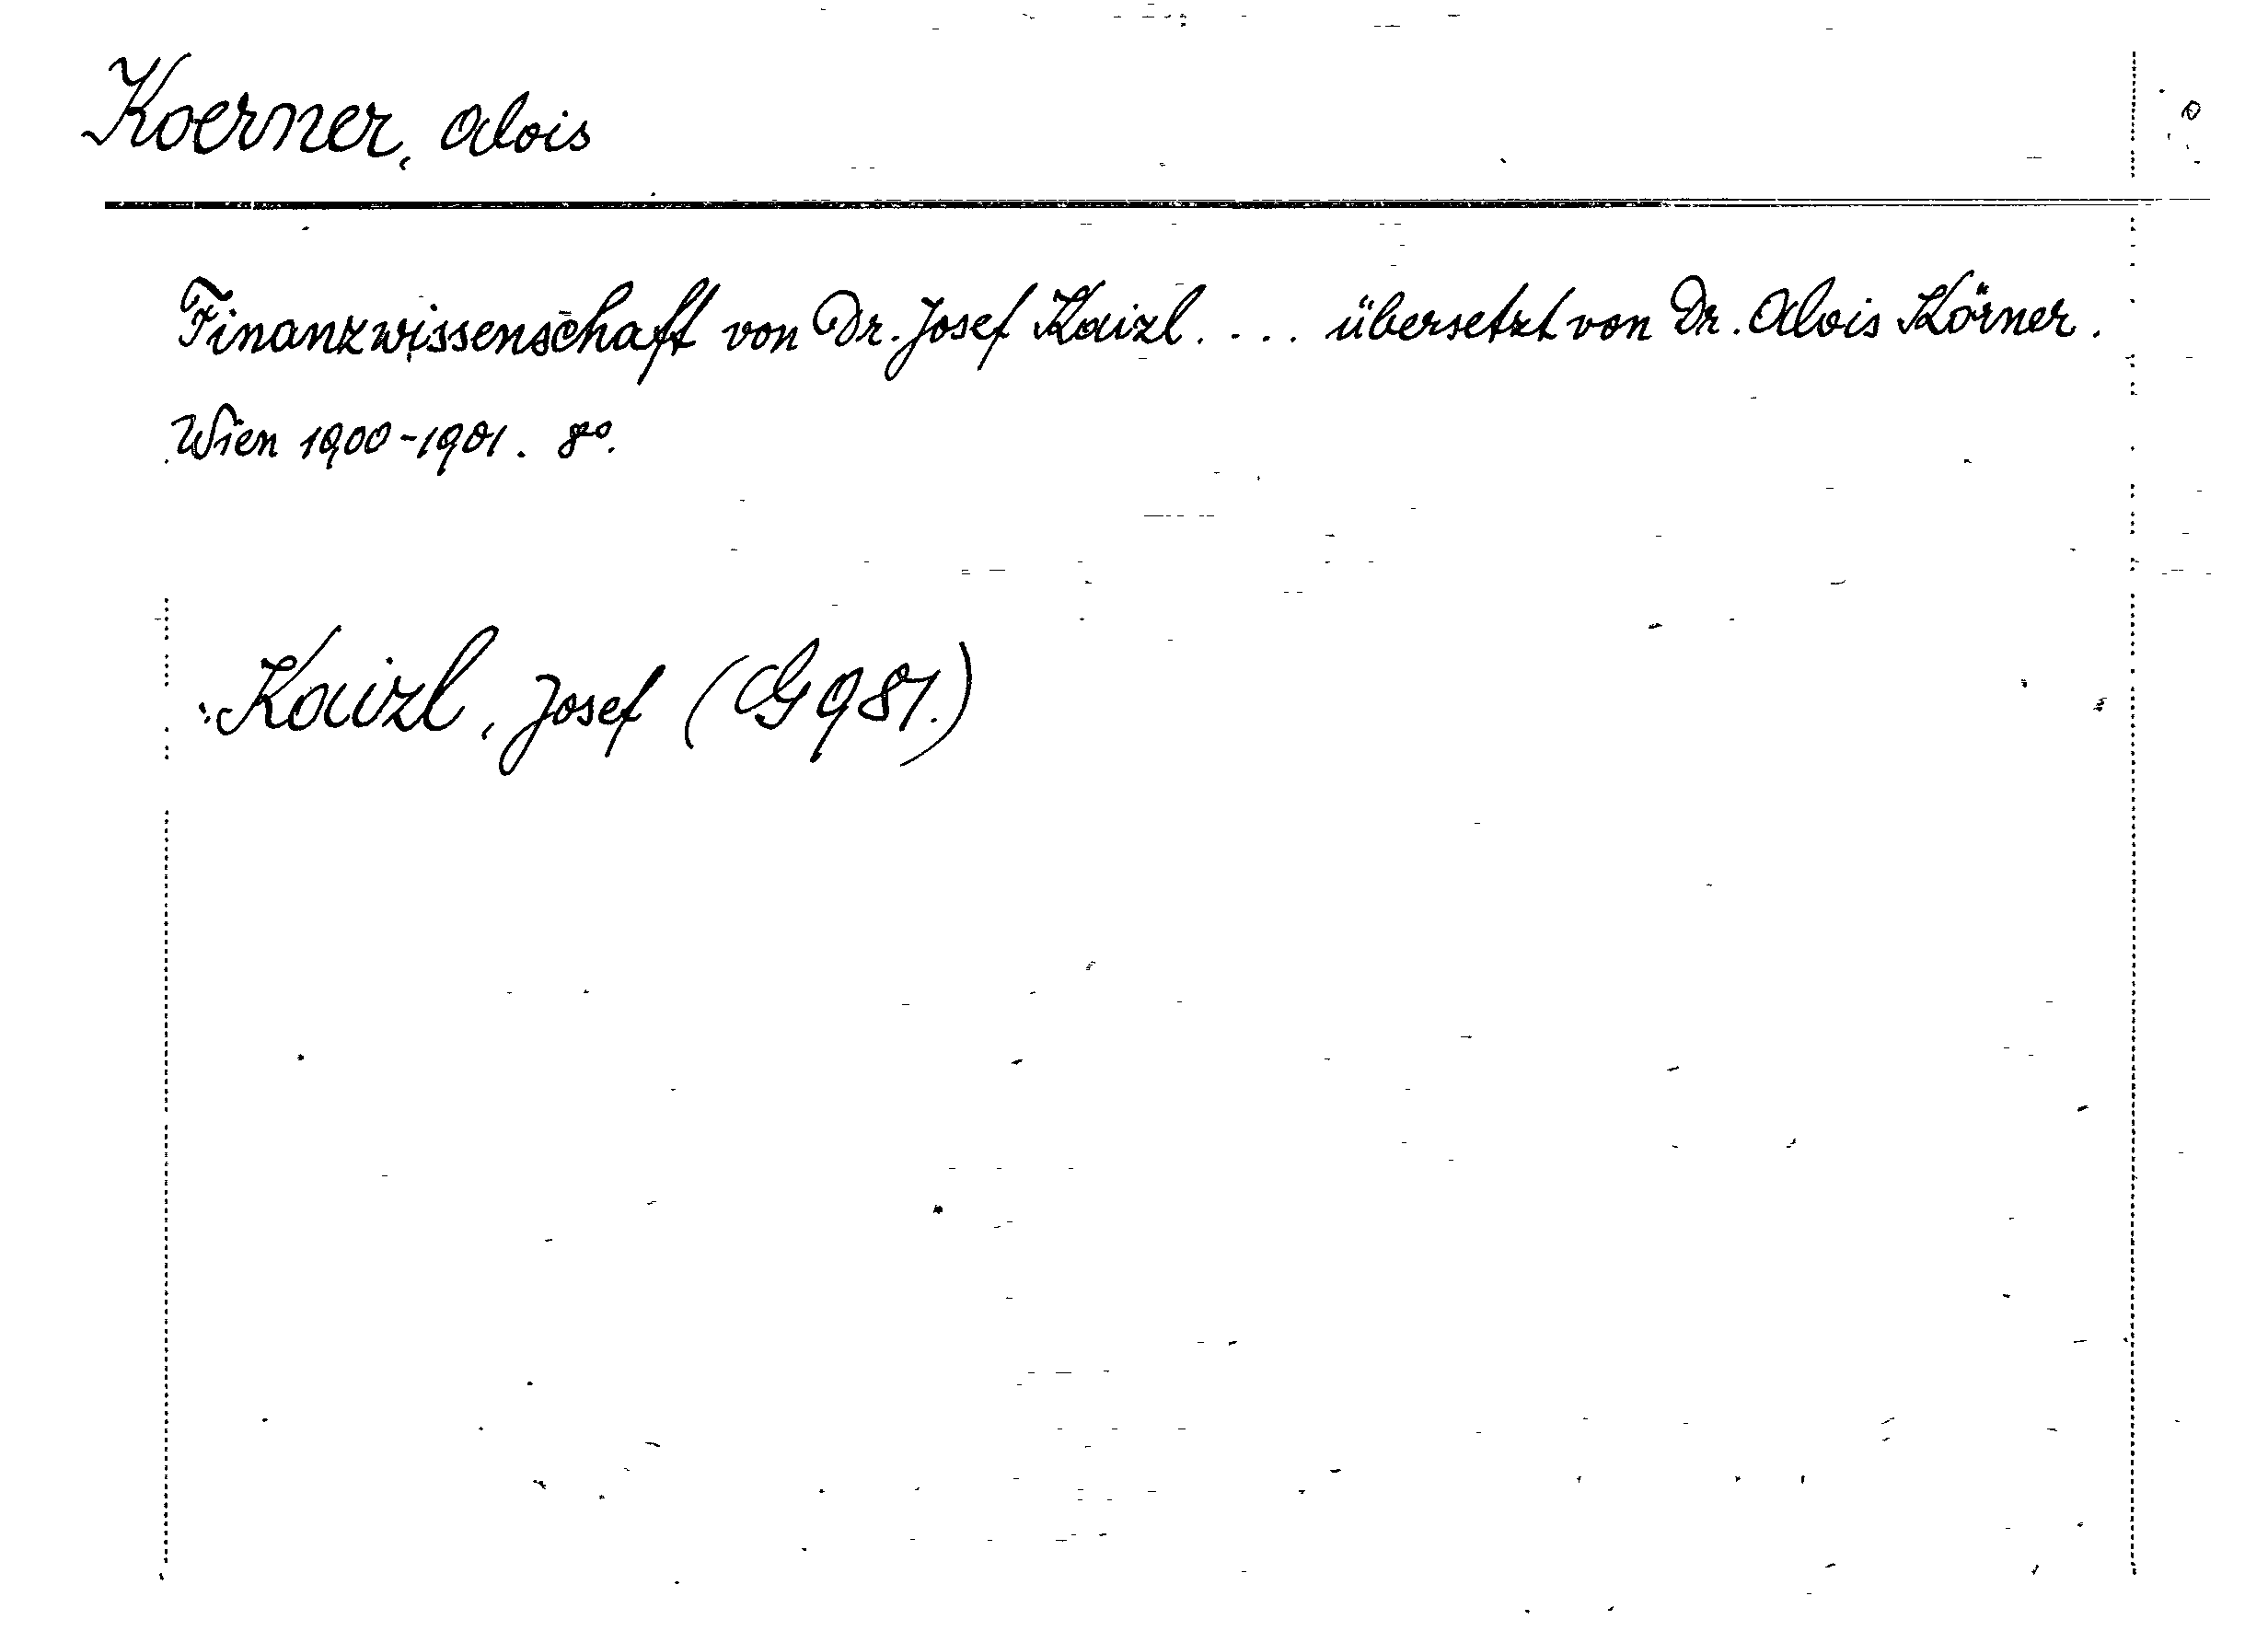 Koerner, Alois
Finanzwissenschaft von Dr. Josef Kaizl. ... übersetzt von Dr. Alois Körner.
Wien 1900-1901. 8°.
Kaizl, Josef (G 981.)